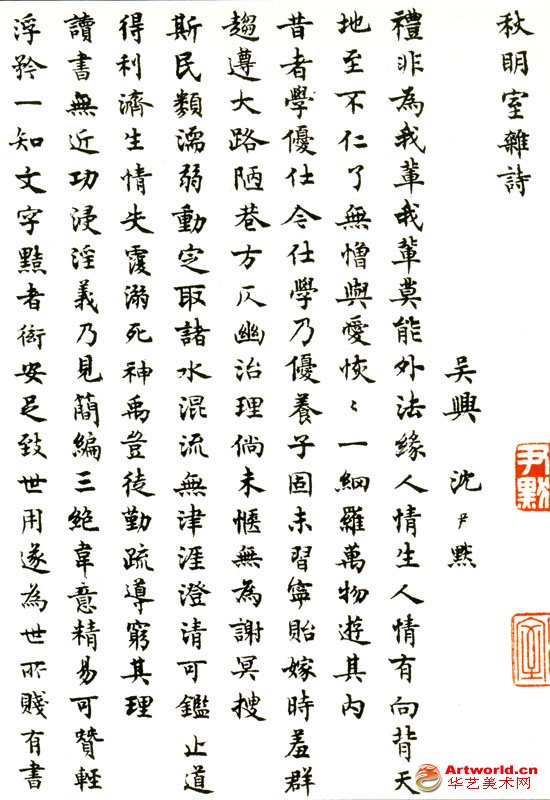 秋明室雜詩
吴興 沈尹默
禮非為我輩我輩莫能外法緣人情生人情有向背天
地至不仁了無憎與愛恢〻一綱羅萬物遊其内
昔者學優仕今仕學乃優養子固未習寧貽嫁時羞群
趨遵大路陋巷方仄幽治理倘未愜無為謝冥搜
斯民類濡弱動定取諸水混流無津涯澄清可鑑止道
得利濟生情失覆溺死神禹豈徒勤疏導窮其理
讀書無近功浸淫義乃見簡編三絶韋意精易可贊輕
浮矜一知文字黠者衒安足致世用遂為世所賤有書
尹默
室
Artworld.cn
华艺美术网